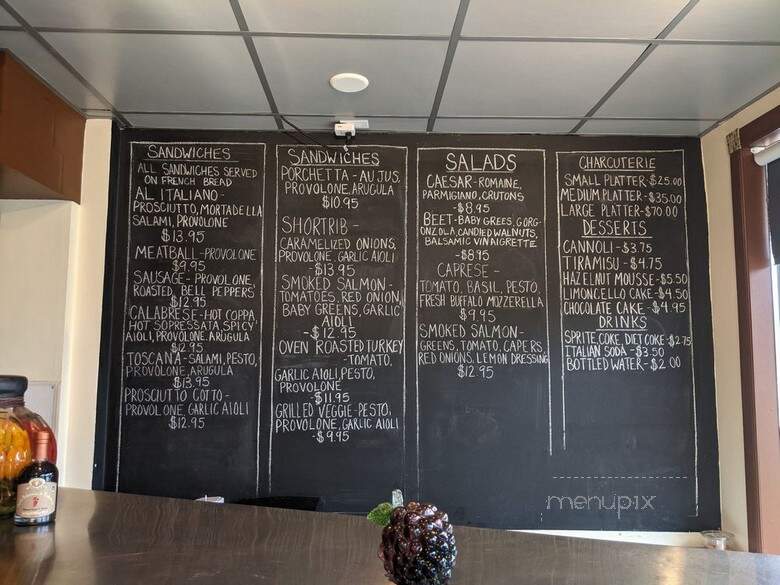 SANDWICHES
ALL SANDWICHES SERVED
ON FRENCH BREAD
AL ITALIANO -
PROSCIUTTO, MORTADELLA
SALAMI, PROVOLONE
$13.95
MEATBALL - PROVOLONE
$9.95
SAUSAGE - PROVOLONE,
ROASTED BELL PEPPERS
$12.95
CALABRESE - HOT COPPA,
HOT SOPRESSATA, SPICY
AIOLI, PROVOLONE, ARUGULA
$12.95
TOSCANA - SALAMI, PESTO,
PROVOLONE, ARUGULA
$13.95
PROSCIUTTO COTTO -
PROVOLONE, GARLIC AIOLI
$12.95
SANDWICHES
PORCHETTA - AU JUS,
PROVOLONE, ARUGULA
$10.95
SHORTRIB -
CARAMELIZED ONIONS,
PROVOLONE, GARLIC AIOLI
- $13.95
SMOKED SALMON -
TOMATOES, RED ONION,
BABY GREENS, GARLIC
AIOLI
- $12.95
OVEN ROASTED TURKEY
- TOMATO,
GARLIC AIOLI, PESTO,
PROVOLONE
- $11.95
GRILLED VEGGIE - PESTO,
PROVOLONE, GARLIC AIOLI
- $9.95
SALADS
CAESAR - ROMAINE,
PARMIGIANO, CRUTONS
- $8.95
BEET - BABY GREES, GORG-
ONZOLA, CANDIED WALNUTS,
BALSAMIC VINAIGRETTE
- $8.95
CAPRESE -
TOMATO, BASIL, PESTO,
FRESH BUFFALO MOZZERELLA
$9.95
SMOKED SALMON -
GREENS, TOMATO, CAPERS
RED ONIONS, LEMON DRESSING
$12.95
CHARCUTERIE
SMALL PLATTER - $25.00
MEDIUM PLATTER - $35.00
LARGE PLATTER - $70.00
DESSERTS
CANNOLI - $3.75
TIRAMISU - $4.75
HAZELNUT MOUSSE - $5.50
LIMONCELLO CAKE - $4.50
CHOCOLATE CAKE - $4.95
DRINKS
SPRITE, COKE, DIET COKE - $2.75
ITALIAN SODA - $3.50
BOTTLED WATER - $2.00
menupix